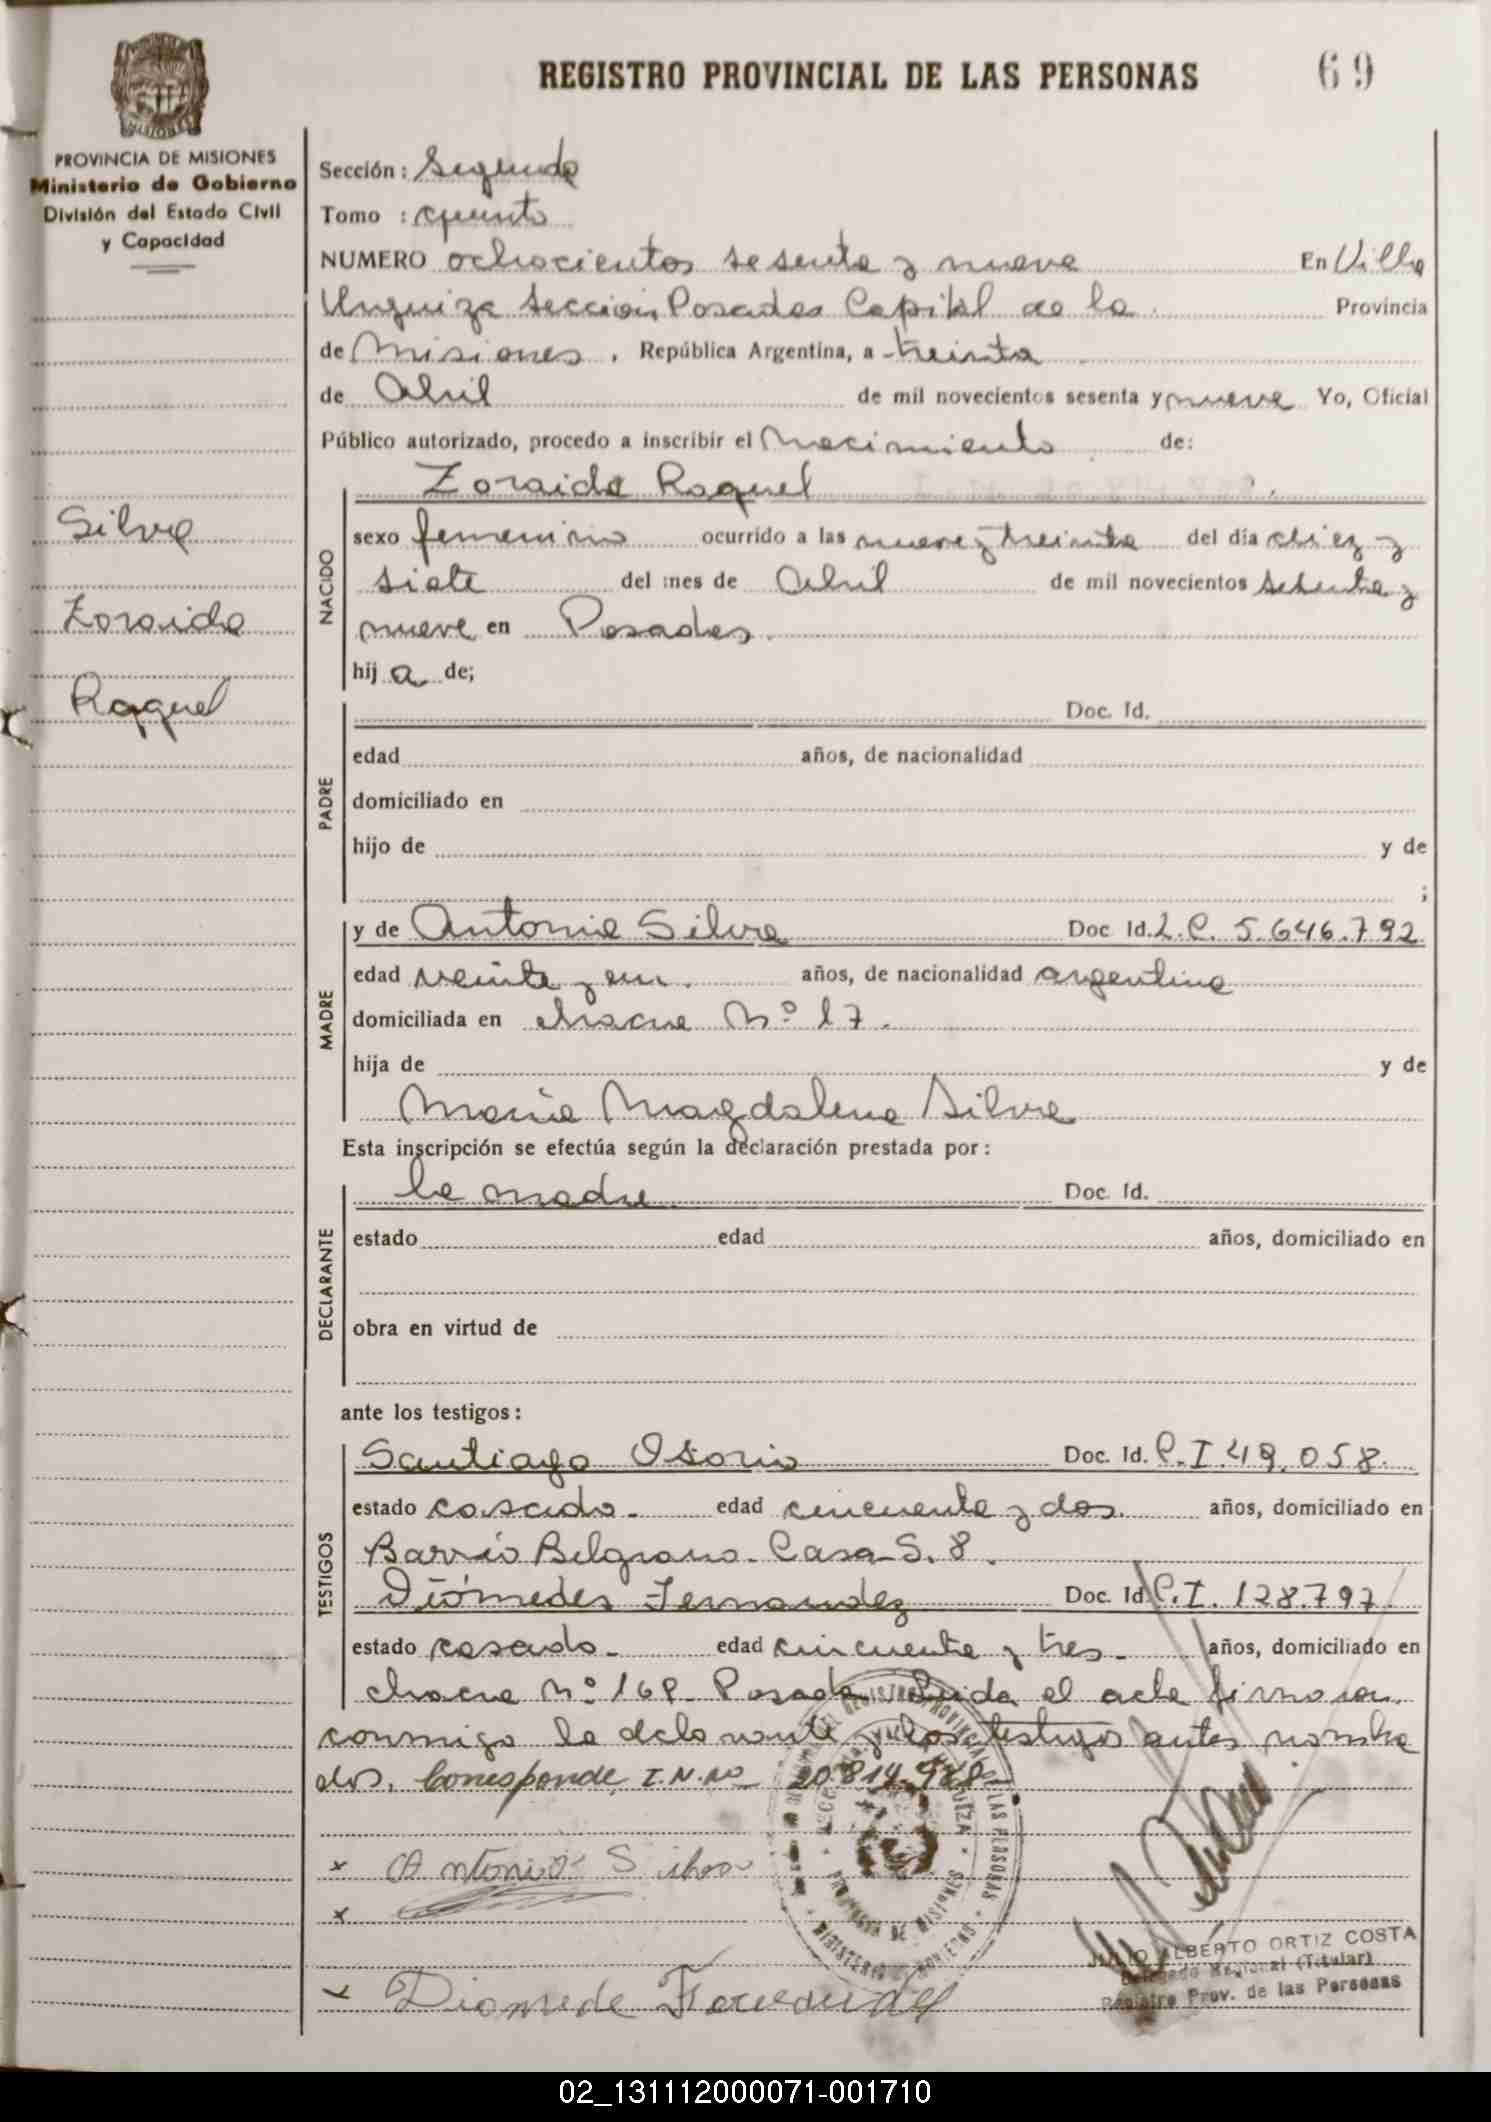 REGISTRO PROVINCIAL DE LAS PERSONAS
69
MISIONES
PROVINCIA DE MISIONES
Ministerio de Gobierno
División del Estado Civil
y Capacidad
Silva
Zoraida
Raquel
Sección: Segunda
Tomo : Quinto
NUMERO ochocientos sesenta y nueve En Villa
Urquiza Sección Posadas Capital de la Provincia
de Misiones, República Argentina, a treinta
de Abril de mil novecientos sesenta y nueve Yo, Oficial
Público autorizado, procedo a inscribir el Nacimiento de:
NACIDO
Zoraida Raquel
sexo femenino ocurrido a las nueve y treinta del día diez y
siete del mes de Abril de mil novecientos sesenta y
nueve en Posadas.
hij a de;
PADRE
Doc. Id.
edad años, de nacionalidad
domiciliado en
hijo de y de
;
MADRE
y de Antonia Silva Doc Id. L.C. 5.646.792
edad veinte y un. años, de nacionalidad argentina
domiciliada en chacra Nº 17.
hija de y de
María Magdalena Silva
Esta inscripción se efectúa según la declaración prestada por:
DECLARANTE
la madre Doc. Id.
estado edad años, domiciliado en
obra en virtud de
ante los testigos:
TESTIGOS
Santiago Osorio Doc. Id. C.I. 49.058.
estado casado. edad cincuenta y dos. años, domiciliado en
Barrio Belgrano. Casa S. 8.
Diómedes Fernandez Doc. Id. C.I. 128.797
estado casado. edad cincuenta y tres. años, domiciliado en
chacra Nº Posadas Leida el acta firman
conmigo la declarante y los testigos antes nombra
dos. Corresponde, I.N.No
x Antonia Silva
x
x Diomede Fernandez
REGISTRO PROVINCIAL DE LAS PERSONAS
PROVINCIA DE MISIONES
JULIO ALBERTO ORTIZ COSTA
Delegado Regional (Titular)
Registro Prov. de las Personas
02_131112000071-001710